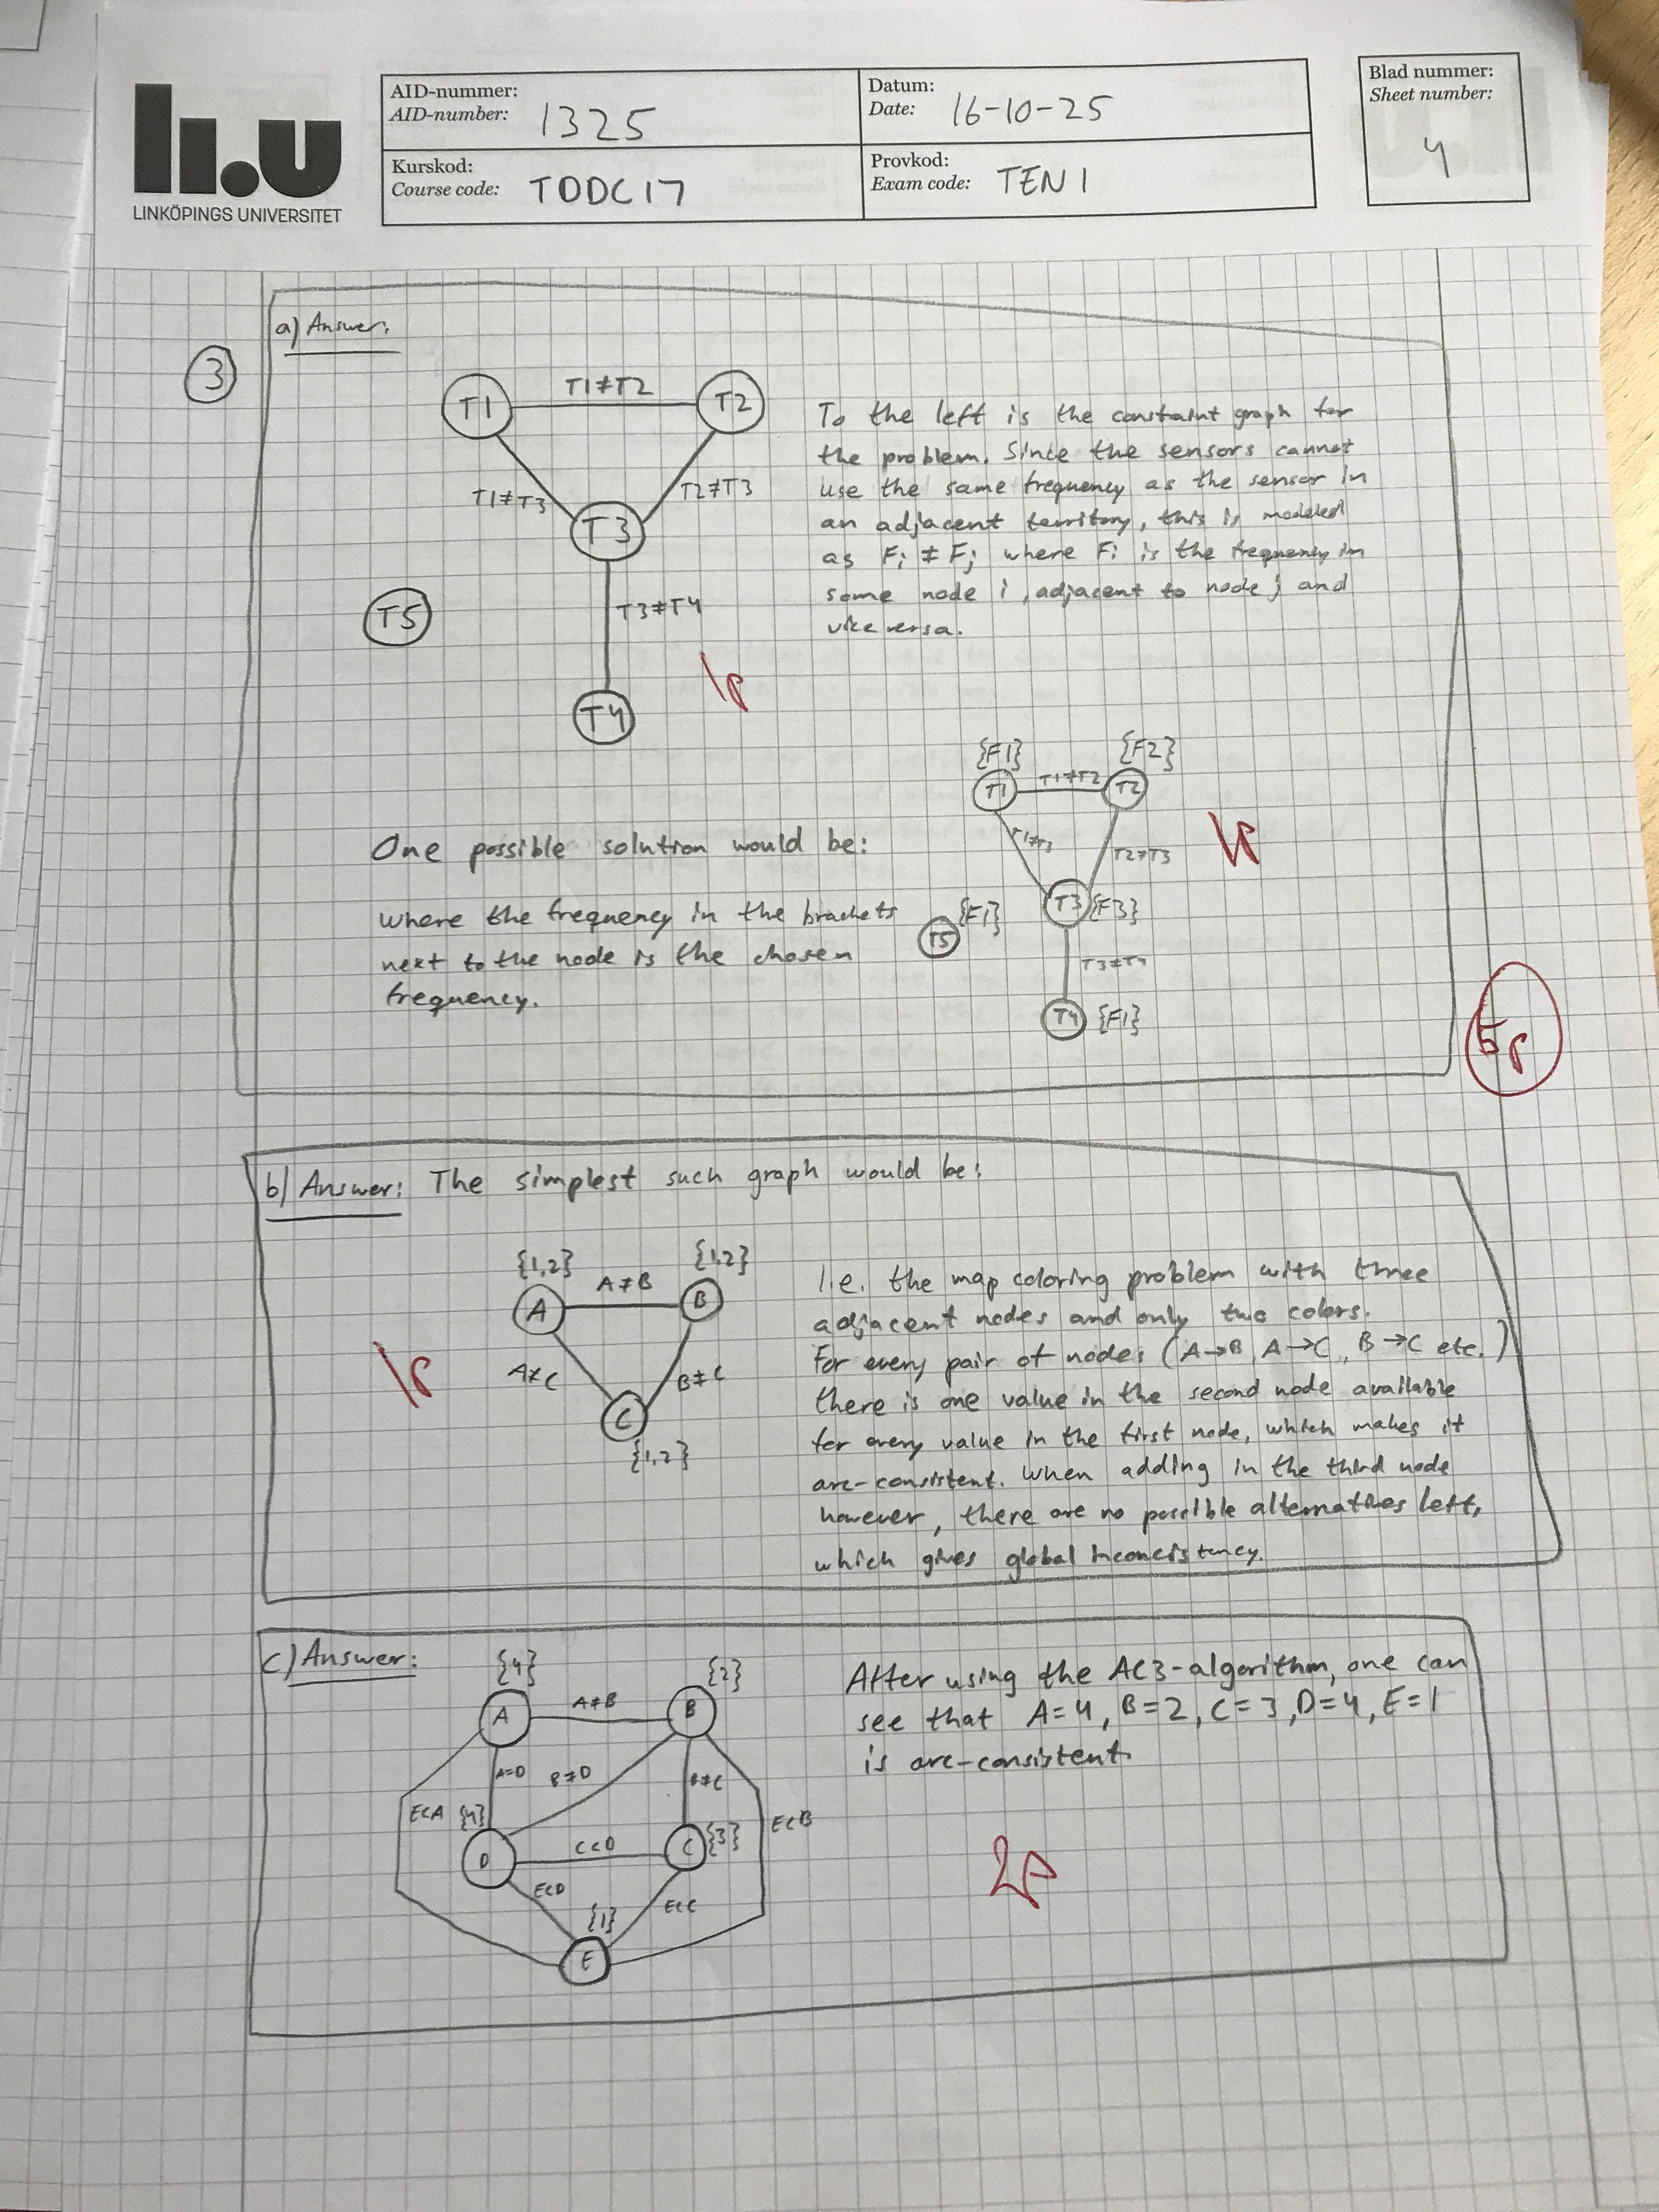 li.u
LINKÖPINGS UNIVERSITET
AID-nummer:
AID-number: 1325
Datum:
Date: 16-10-25
Kurskod:
Course code: TDDC17
Provkod:
Exam code: TEN1
Blad nummer:
Sheet number:
4
3
a) Answer:
T1
T1≠T2
T2
T1≠T3
T2≠T3
T3
T5
T3≠T4
T4
1p
To the left is the constaint graph for
the problem. Since the sensors cannot
use the same frequency as the sensor in
an adjacent territory, this is modeled
as Fi ≠ Fj where Fi is the frequency in
some node i, adjacent to node j and
vice versa.
One possible solution would be:
where the frequency in the brackets
next to the node is the chosen
frequency.
{F1}
{F2}
T1
T1≠T2
T2
T1≠T3
T2≠T3
1p
{F1}
T5
T3
{F3}
T3≠T4
T4
{F1}
5p
b) Answer: The simplest such graph would be:
{1,2}
{1,2}
A
A≠B
B
A≠C
B≠C
C
{1,2}
1p
I.e. the map coloring problem with three
adjacent nodes and only two colors.
For every pair of nodes (A→B, A→C, B→C etc.)
there is one value in the second node available
for every value in the first node, which makes it
arc-consistent. When adding in the third node
however, there are no possible alternatives left,
which gives global inconcistency.
c) Answer:
{4}
{2}
A
A≠B
B
A=D
B≠D
B≠C
E<A
{4}
E<B
D
C<D
C
{3}
E<D
E<C
{1}
E
After using the AC3-algorithm, one can
see that A=4, B=2, C=3, D=4, E=1
is arc-consistent.
2p